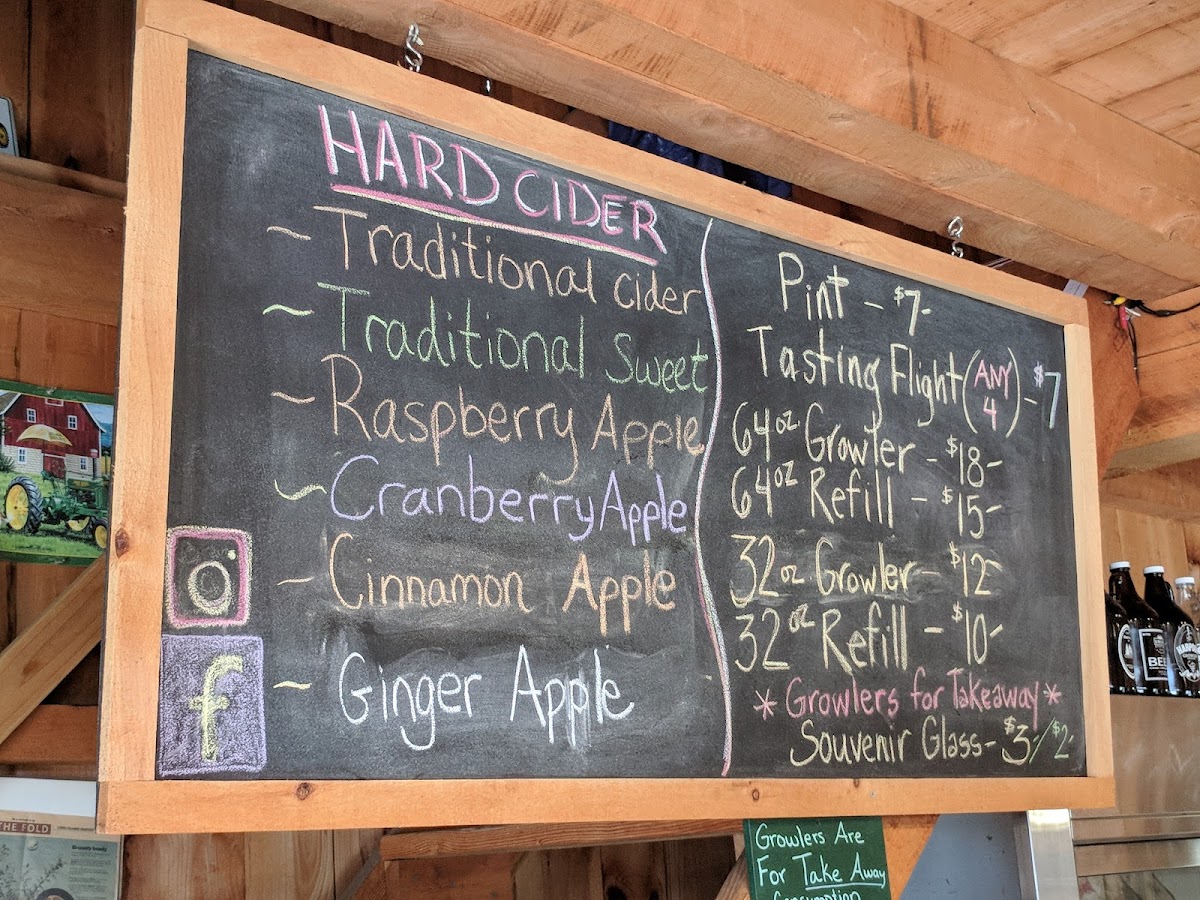 HARD CIDER
~ Traditional cider
~ Traditional Sweet
~ Raspberry Apple
~ Cranberry Apple
~ Cinnamon Apple
~ Ginger Apple
f
Pint - $7-
Tasting Flight (ANY 4) - $7
64oz Growler - $18-
64oz Refill - $15-
32oz Growler - $12-
32oz Refill - $10-
* Growlers for Takeaway *
Souvenir Glass - $3/$2
GROWLERS ARE
FOR TAKE AWAY
THE FOLD